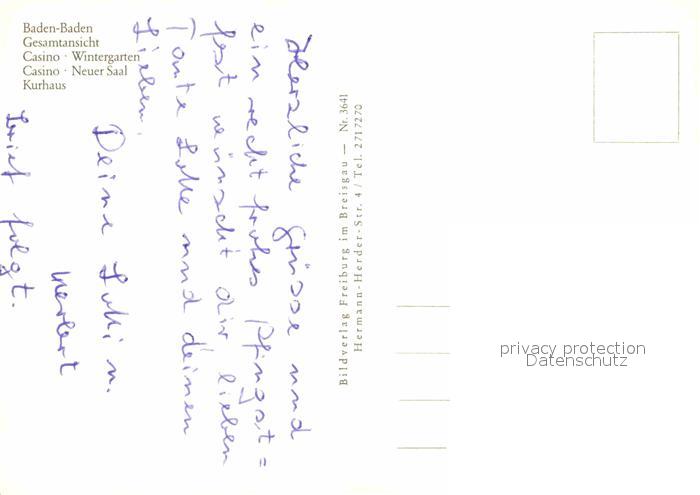 Baden-Baden
Gesamtansicht
Casino · Wintergarten
Casino · Neuer Saal
Kurhaus
Herzliche Grüsse und
ein recht frohes Pfingst=
fest wünscht dir lieben
Tante und deinen
Lieben.
Deine u.
Herbert
Brief folgt.
Bildverlag Freiburg im Breisgau — Nr. 3641
Hermann-Herder-Str. 4 / Tel. 2717270
privacy protection
Datenschutz